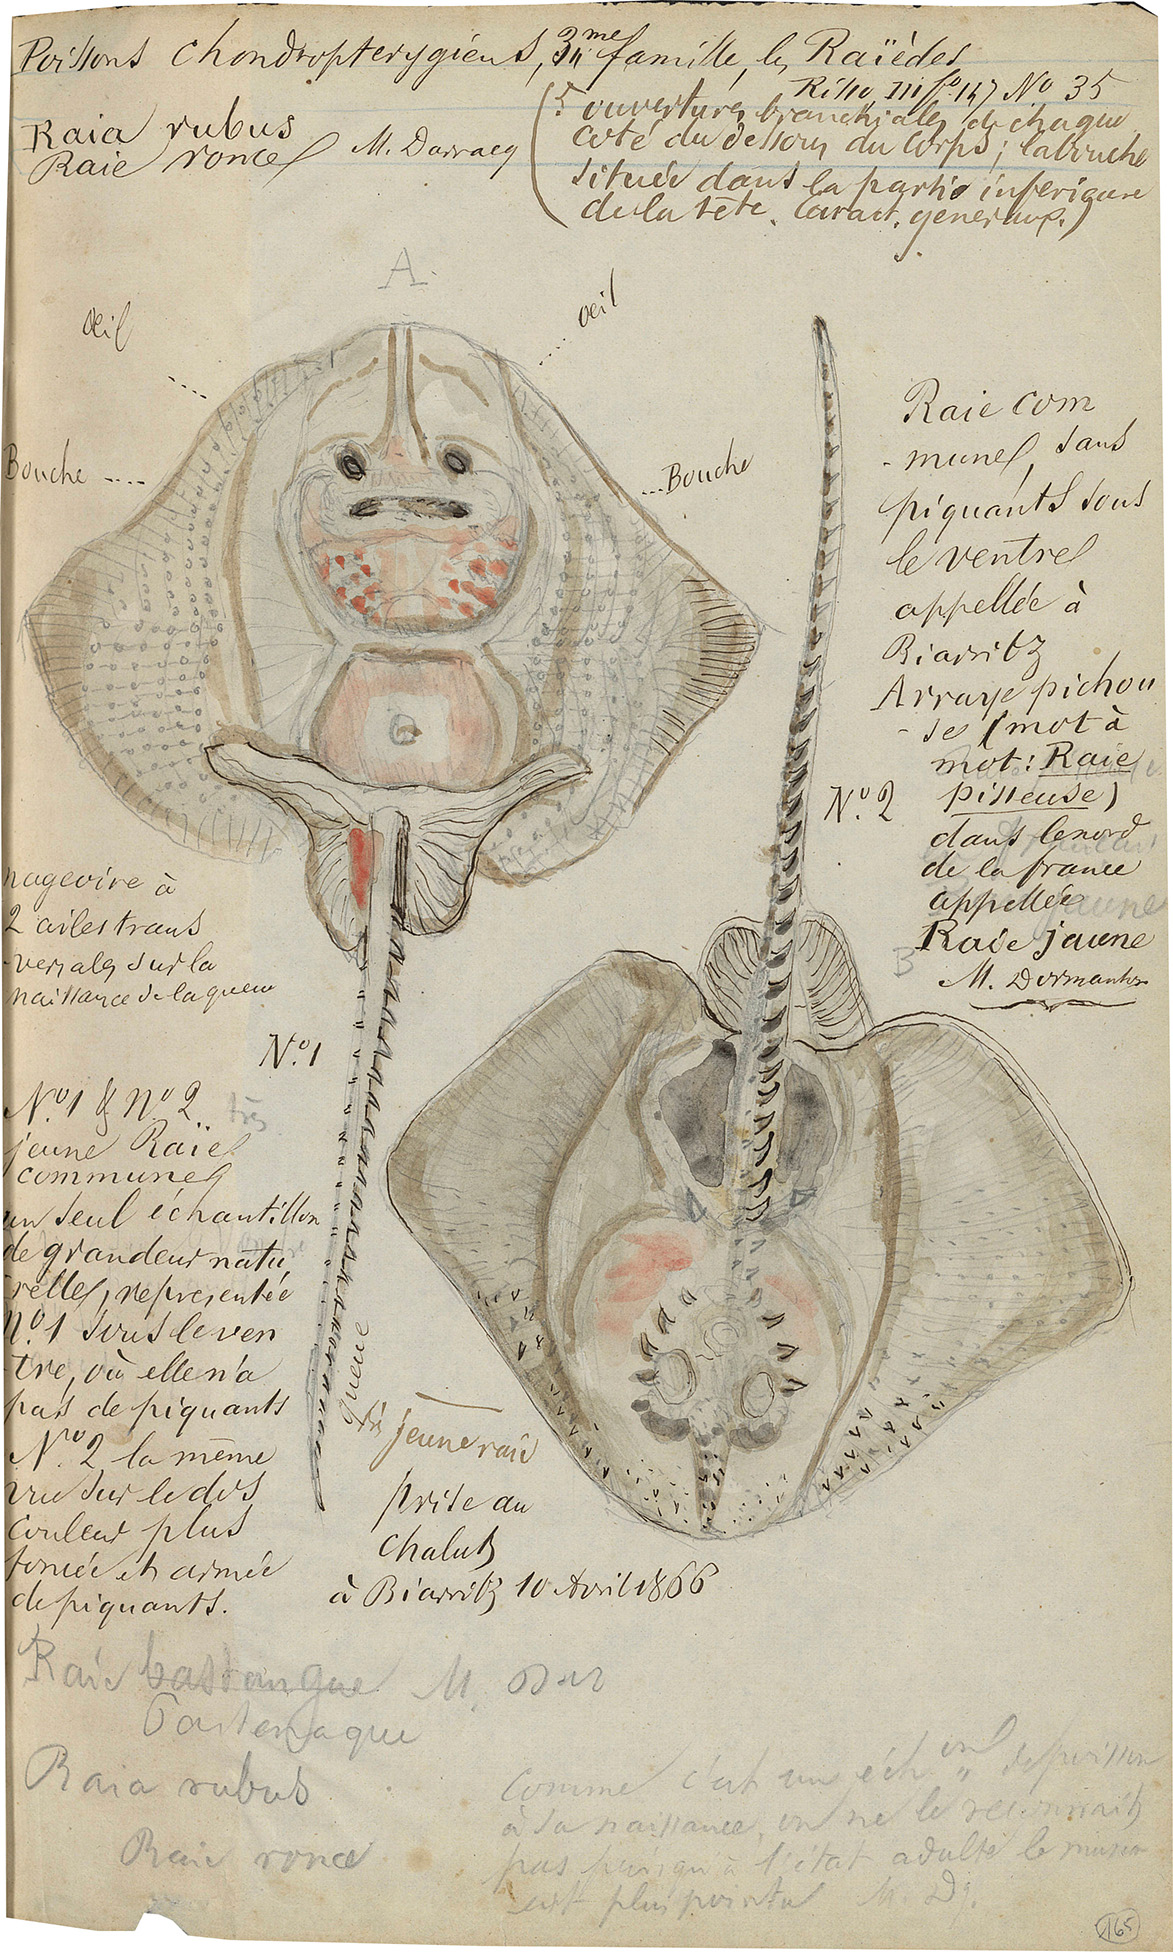 Poissons chondropterygiens, 3me famille, les Raïèdes
Risso III fo. 147 No 35
Raia rubus
Raie ronce
M. Darracq
(5 ouvertures branchiales de chaque
coté du dessous du corps; la bouche
située dans la partie inferieure
de la tête. Caract. generaux.)
A.
oeil
oeil
Bouche
Bouche
Raie com
-mune, sans
piquants sous
le ventre
appellée à
Biarritz
Arraye pichou
-se (mot à
mot: Raie
pisseuse)
dans le nord
de la france
appellée
Raie jaune
M. Dermanton
No. 2
B
nageoire à
2 ailes trans
-versales sur la
naissance de la queue
No. 1
No 1 & no 2
très
jeune Raïe
commune
un seul échantillon
de grandeur natu
relle, représentée
No. 1 sous le ven
-tre, où elle n'a
pas de piquants
No. 2 la même
vue sur le dos
couleur plus
foncée et armée
de piquants.
queue
très jeune raie
prise au
chalut
à Biarritz 10 Avril 1866
Raie bastangue M. Dar
Pastenaque
Raia rubus
Raie ronce
Comme c'est un échon de poisson
à sa naissance, on ne le reconnait
pas puisqu'à l'état adulte le museau
est plus pointu M. D.
165